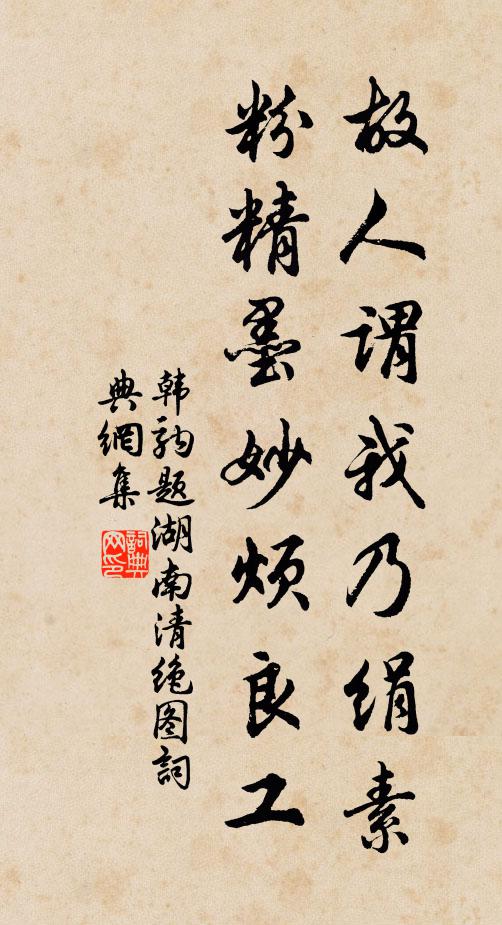 故人谓我乃绢素
粉精墨妙烦良工
韩驹题湖南清绝图词
典網集
詞典
网印